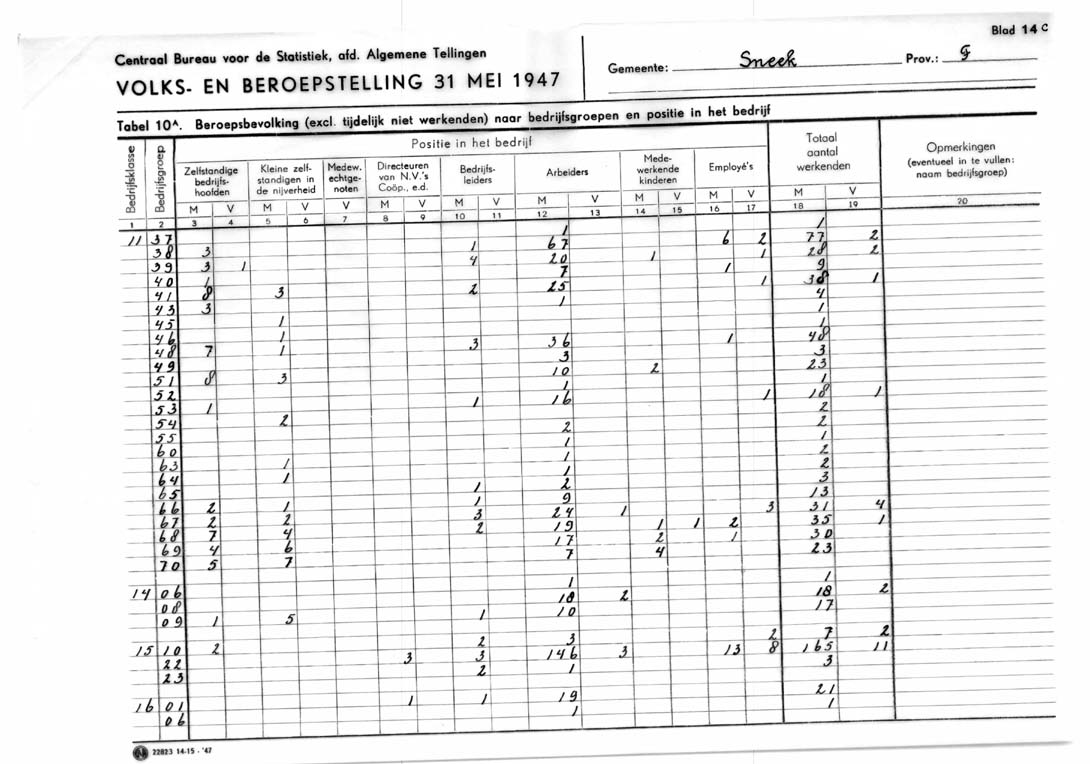 Blad 14 C
Centraal Bureau voor de Statistiek, afd. Algemene Tellingen
VOLKS- EN BEROEPSTELLING 31 MEI 1947
Gemeente: Sneek Prov.: F
Tabel 10A. Beroepsbevolking (excl. tijdelijk niet werkenden) naar bedrijfsgroepen en positie in het bedrijf
Bedrijfsklasse
Bedrijfsgroep
Positie in het bedrijf
Zelfstandige bedrijfs-hoofden
Kleine zelf-standigen in de nijverheid
Medew. echtge-noten
Directeuren van N.V.'s Coöp., e.d.
Bedrijfs-leiders
Arbeiders
Mede-werkende kinderen
Employé's
Totaal aantal werkenden
Opmerkingen (eventueel in te vullen: naam bedrijfsgroep)
M V M V V M V M V M V M V M V M V
1 2 3 4 5 6 7 8 9 10 11 12 13 14 15 16 17 18 19 20
11 37 1 1
38 3 1 67 6 2 77 2
39 3 1 4 20 1 1 28 2
40 1 7 1 9
41 8 3 2 25 1 38 1
43 3 1 4
45 1 1
46 1 1
48 7 1 3 36 1 48
49 3 3
51 8 3 10 2 23
52 1 1
53 1 1 16 1 18 1
54 2 2
55 2 2
60 1 1
63 1 1 2
64 1 1 2
65 1 2 3
66 2 1 1 9 13
67 2 2 3 24 1 3 31 4
68 7 4 2 19 1 1 2 35 1
69 4 6 17 2 1 30
70 5 7 7 4 23
14 06 1 1
08 18 2 18 2
09 1 5 1 10 17
15 10 2 2 3 2 7 2
22 3 3 146 3 13 8 165 11
23 2 1 3
16 01 1 1 19 21
06 1 1
22823 14-15 - '47